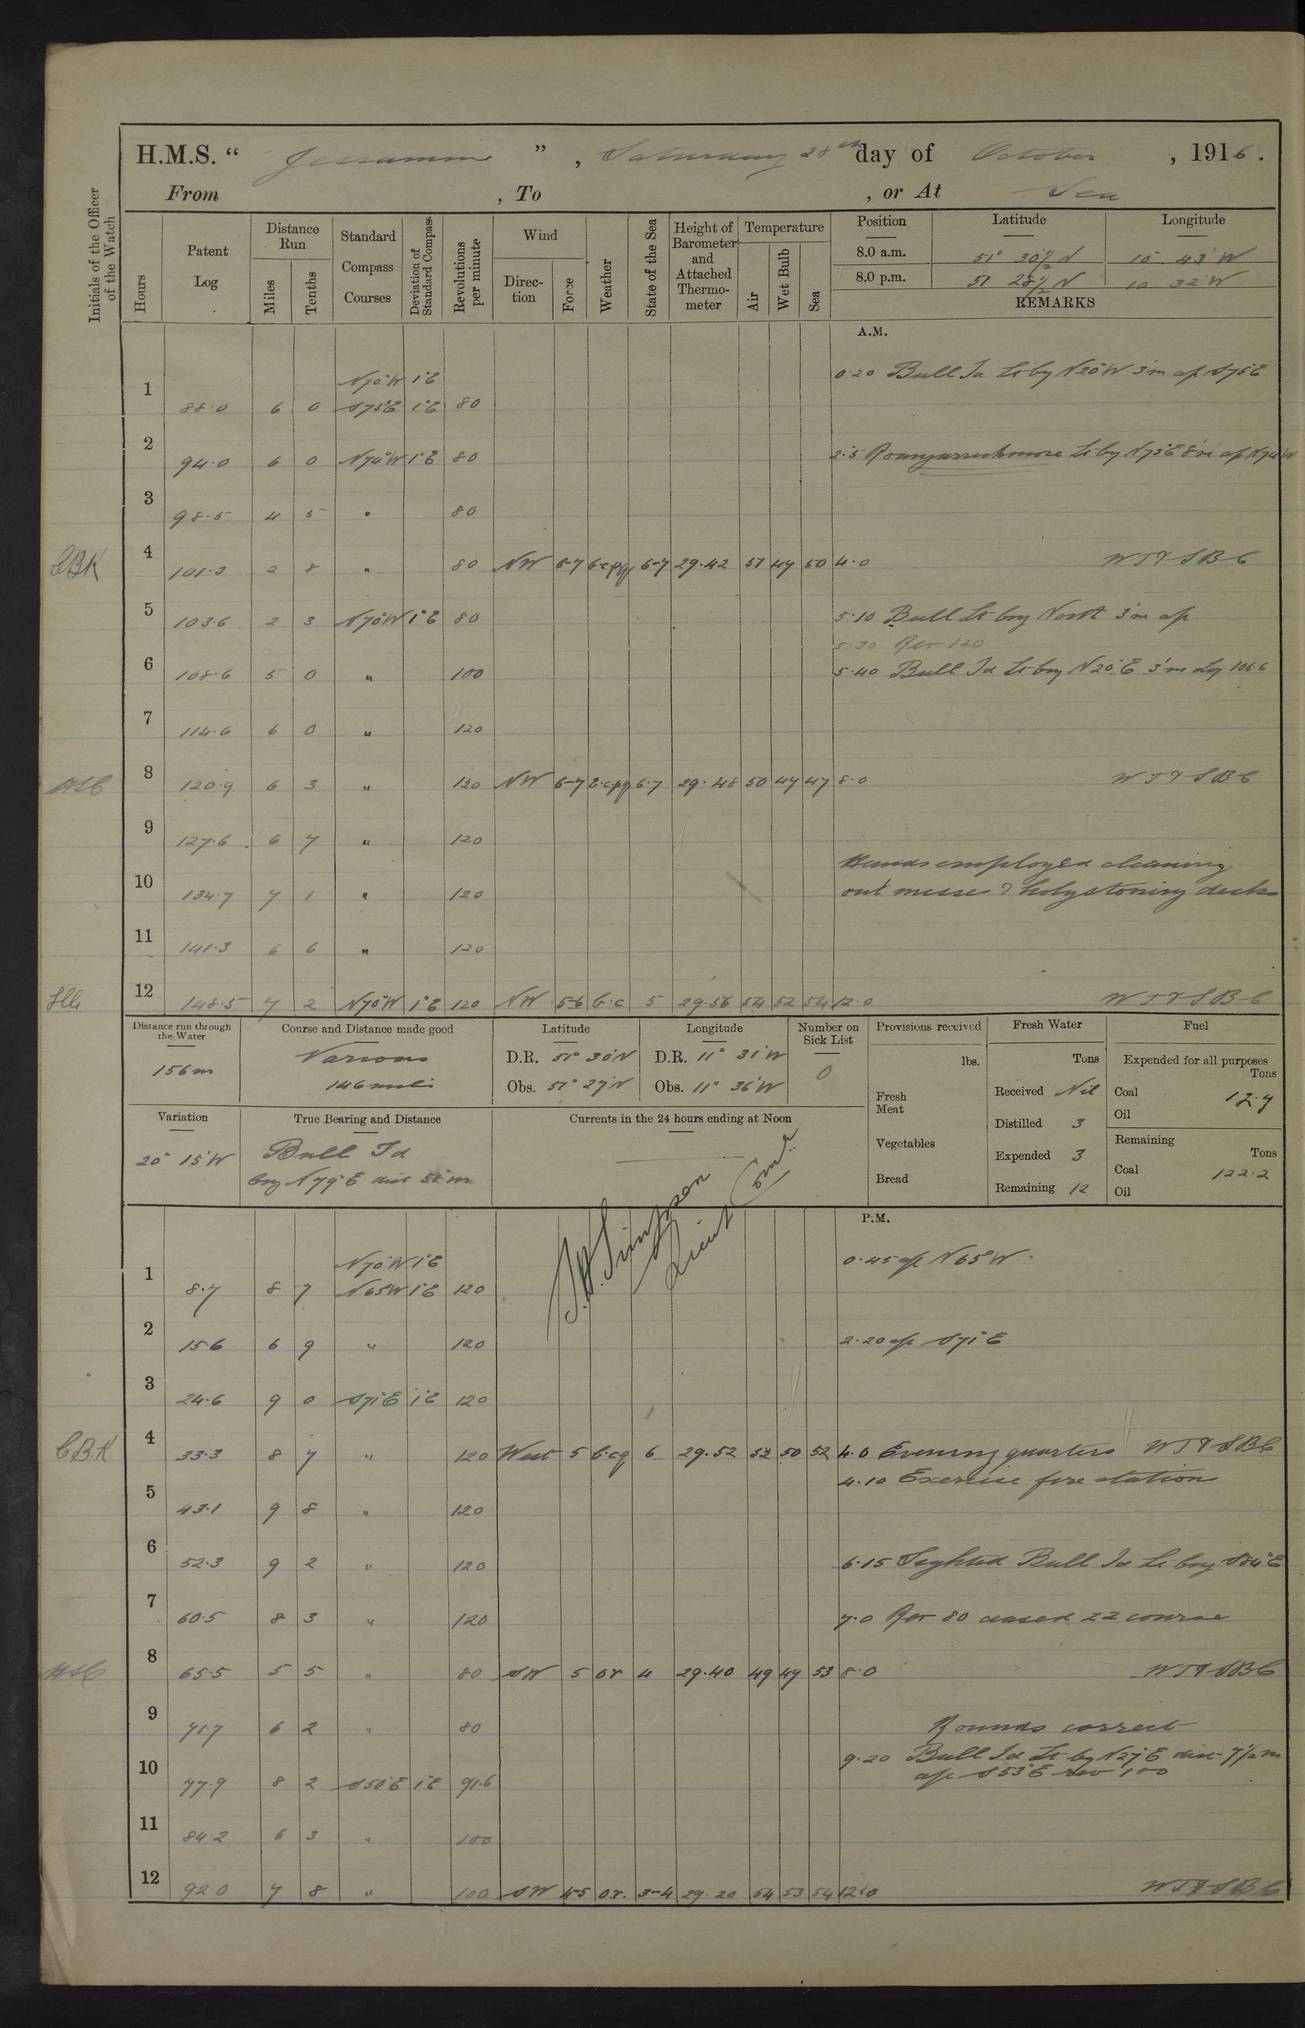 H.M.S. “ Jessamine ” , Saturday 28th day of October , 1916 .
From , To , or At Sea
Initials of the Officer of the Watch
Hours
Patent Log
Distance Run
Miles
Tenths
Standard Compass Courses
Deviation of Standard Compass
Revolutions per minute
Wind
Direction
Force
Weather
State of the Sea
Height of Barometer and Attached Thermometer
Temperature
Air
Wet Bulb
Sea
Position Latitude Longitude
8.0 a.m. 51° 30½ N 10 43' W
8.0 p.m. 51 28½ N 10 32' W
REMARKS
A.M.
N70°W 1°E 0·20 Bull Id Lt by N20°W 3'm a/c S75E
1 88·0 6 0 S75E 1°E 80
2 94·0 6 0 N74°W 1°E 80
3 98·5 4 5 " 80
CBK 4 101·3 2 8 " 80 NW 6-7 6-7 29·42 51 47 50 4·0
5 103·6 2 3 N70°W 1°E 80 5·10 Bull Lt brg North 3'm a/c
5·30 Rev 120
6 108·6 5 0 " 100 5·40 Bull Id Lt brg N20°E 3'm Log 106·6
7 114·6 6 0 " 120
8 120·9 6 3 " 120 NW 6-7 6·7 29·48 50 47 47 8·0
9 127·6 6 7 " 120
Hands employed cleaning
10 134·7 7 1 " 120 out messes & holystoning decks
11 141·3 6 6 " 120
12 148·5 7 2 N70°W 1°E 120 NW 5-6 b·c 5 29·56 54 52 54 12·0
Distance run through the Water
156m
Course and Distance made good
Various
146 miles
Latitude
D.R. 51° 30'N
Obs. 51° 27'N
Longitude
D.R. 11° 31'W
Obs. 11° 36'W
Number on Sick List
0
Provisions received
lbs.
Fresh Meat
Vegetables
Bread
Fresh Water
Tons
Received Nil
Distilled 3
Expended 3
Remaining 12
Fuel
Expended for all purposes
Tons
Coal 12·7
Oil
Remaining
Tons
Coal 122·2
Oil
Variation
20° 15'W
True Bearing and Distance
Bull Id
brg N79°E dist
Currents in the 24 hours ending at Noon
Simpson
Lieut Comdr
P.M.
N70°W 1°E 0·45 a/c N65°W
1 8·7 8 7 N65W 1°E 120
2 15·6 6 9 " 120 2·20 a/c S71°E
3 24·6 9 0 S71°E 1°E 120
CBK 4 33·3 8 7 " 120 West 5 b·cq 6 29·52 52 50 52 4·0 Evening quarters
4·10 Exercise fire station
5 43·1 9 8 " 120
6 52·3 9 2 " 120 6·15 Sighted Bull Id Lt brg S84°E
7 60·5 8 3 " 120 7·0 Rev 80 ceased ZZ course
8 65·5 5 5 " 80 SW 5 or 4 29·40 49 47 53 8·0
9 71·7 6 2 " 80 Rounds correct
9·20 Bull Id Lt by N27°E dist 7½m
10 77·9 8 2 S50°E 1°E 91·6 a/c S53°E rev 100
11 84·2 6 3 " 100
12 92·0 7 8 " 100 SW 4-5 or. 3-4 29·20 54 53 54 12·0